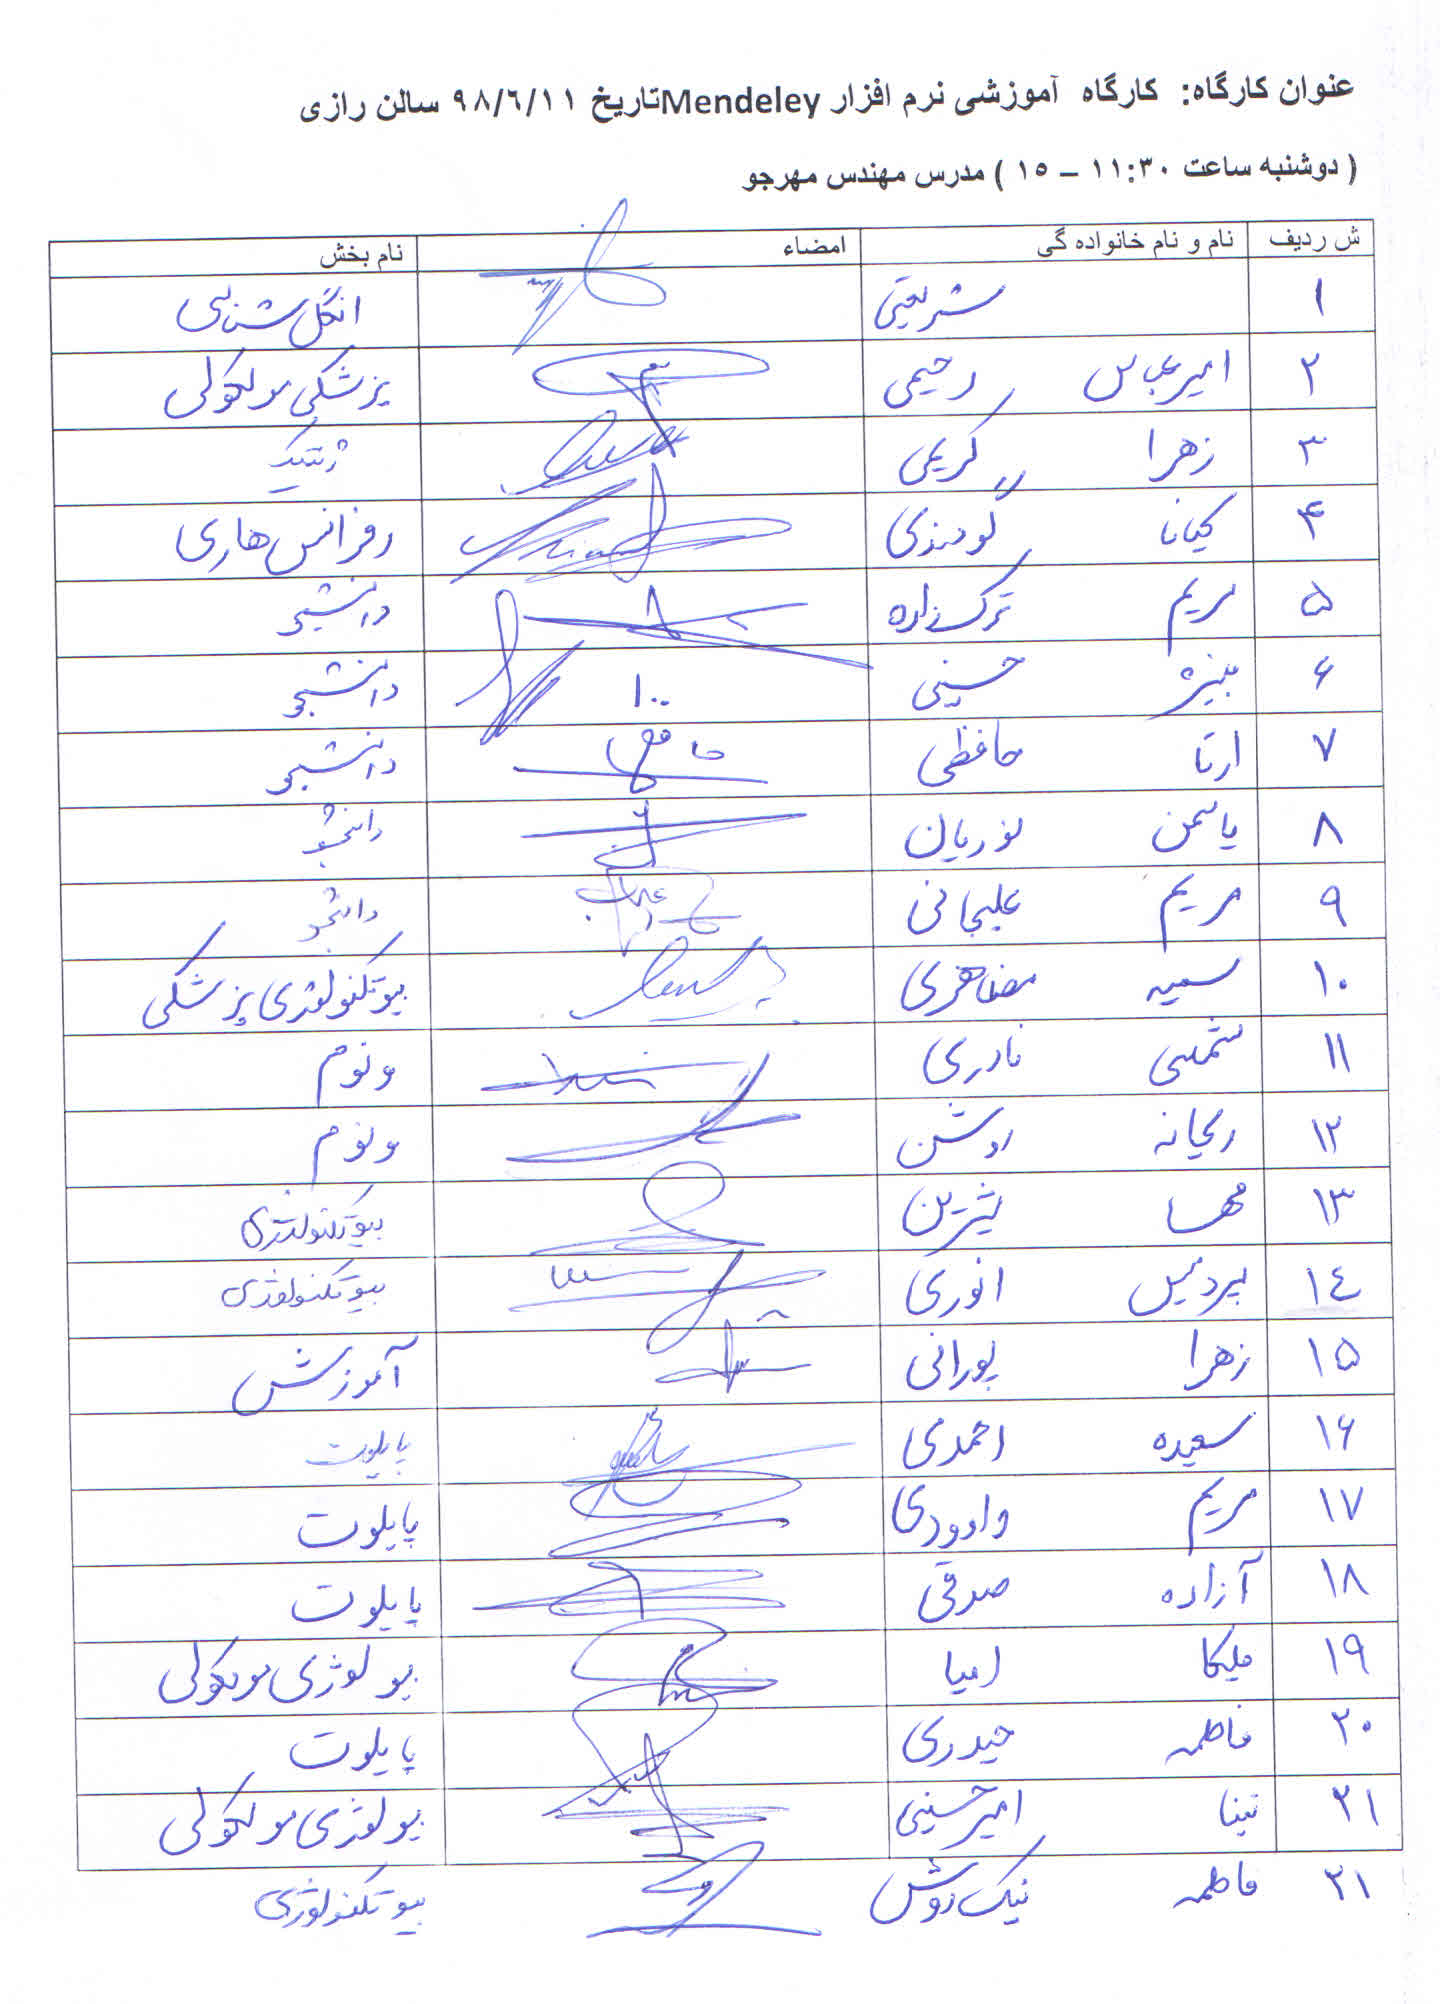 عنوان کارگاه: کارگاه آموزشی نرم افزار Mendeleyتاریخ ۹۸/۶/۱۱ سالن رازی
( دوشنبه ساعت ۱۱:۳۰ – ۱۵ ) مدرس مهندس مهرجو
ش ردیف نام و نام خانواده گی امضاء نام بخش
۱ شریعتی انگل شناسی
۲ امیرعباس رحیمی پزشکی مولکولی
۳ زهرا کریمی ژنتیک
۴ کیانا گودرزی رفرانس هاری
۵ مریم ترک زاده دانشجو
۶ حسینی دانشجو
۷ ارتا حافظی دانشجو
۸ یاسمن نوریان دانشجو
۹ مریم علیجانی دانشجو
۱۰ سمیه مضاهری بیوتکنولوژی پزشکی
۱۱ نادری ونوم
۱۲ ریحانه روشن ونوم
۱۳ مهسا شیرین بیوتکنولوژی
۱۴ پردیس انوری بیوتکنولوژی
۱۵ زهرا پورانی آموزش
۱۶ سعیده احمدی پایلوت
۱۷ مریم داوودی پایلوت
۱۸ آزاده صدقی پایلوت
۱۹ ملیکا بیولوژی مولکولی
۲۰ فاطمه حیدری پایلوت
۲۱ نینا امیرحسینی بیولوژی مولکولی
۲۱ فاطمه نیک روش بیوتکنولوژی